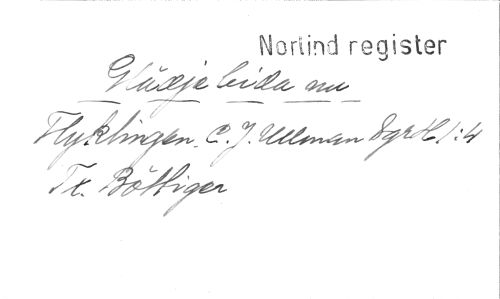 Norlind register
Glädje bida nu
Flyktingen. C. J. Ullman Sgrt 1:4
Tx. Böttiger